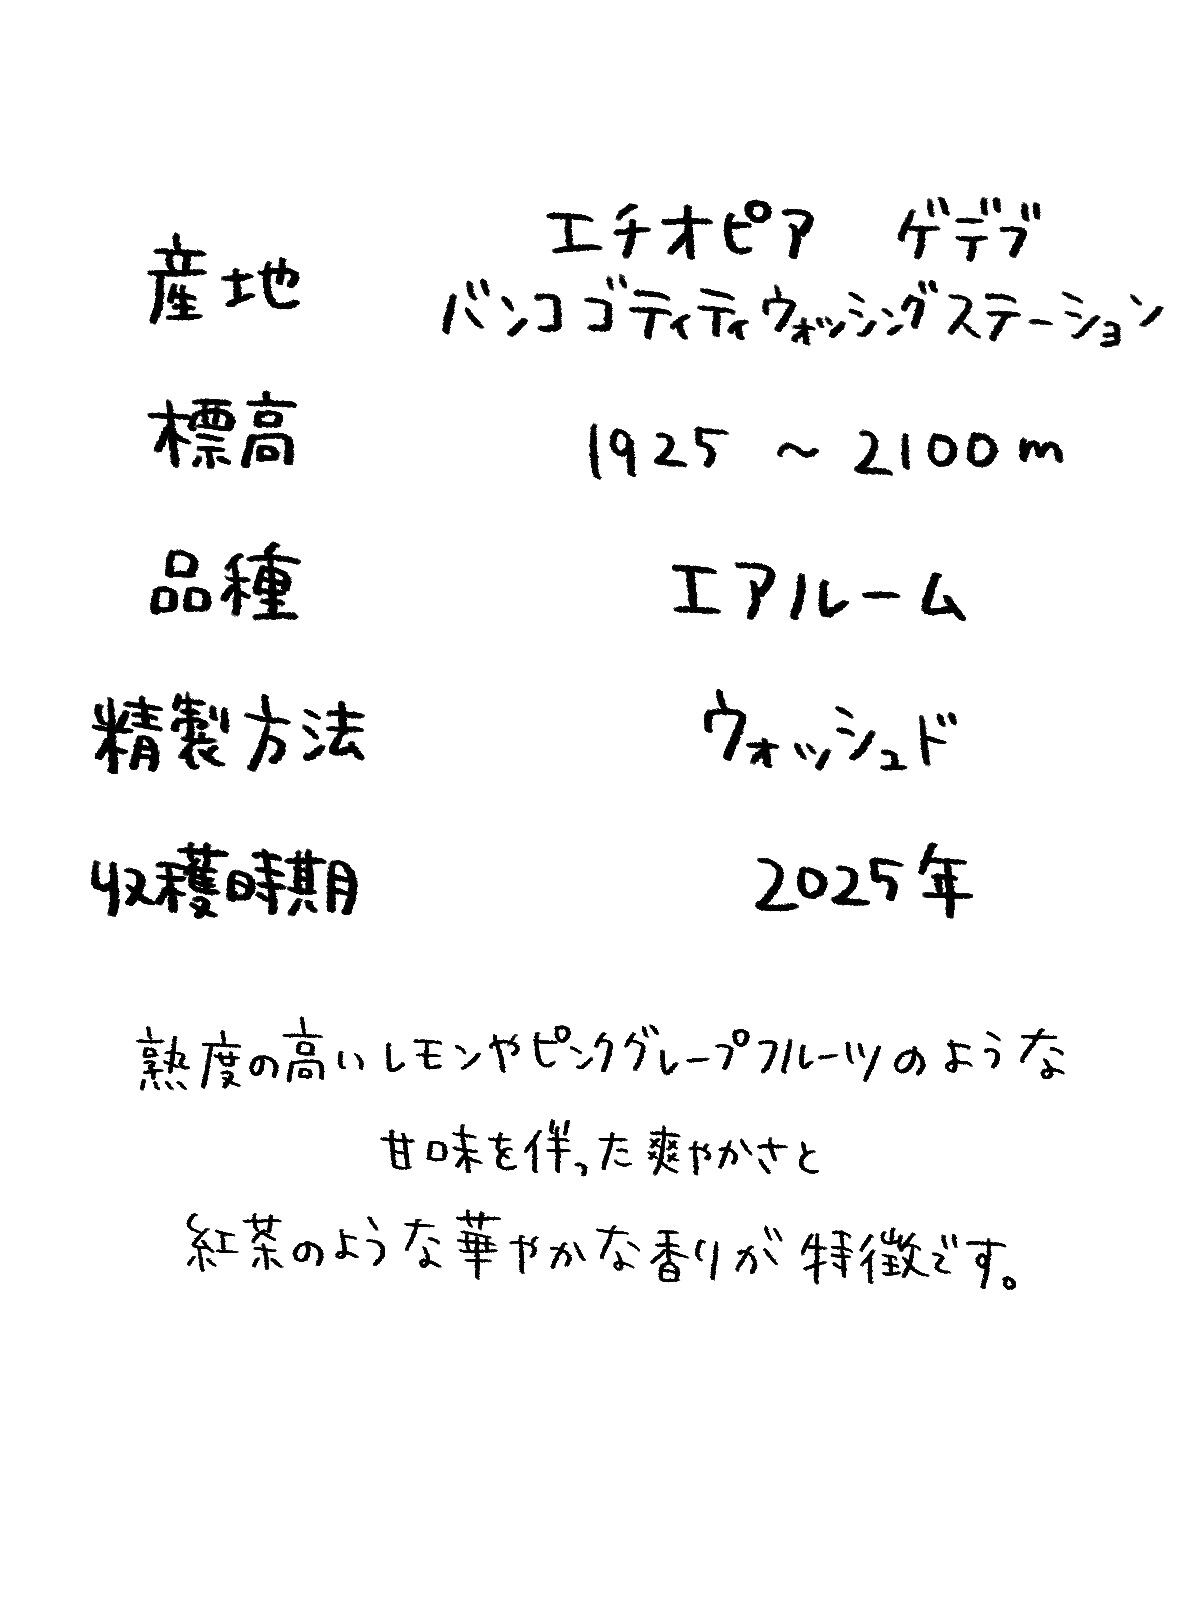 産地 エチオピア ゲデブ
バンコ ゴティティ ウォッシングステーション
標高 1925 ～ 2100m
品種 エアルーム
精製方法 ウォッシュド
収穫時期 2025年
熟度の高いレモンやピンクグレープフルーツのような
甘味を伴った爽やかさと
紅茶のような華やかな香りが特徴です。